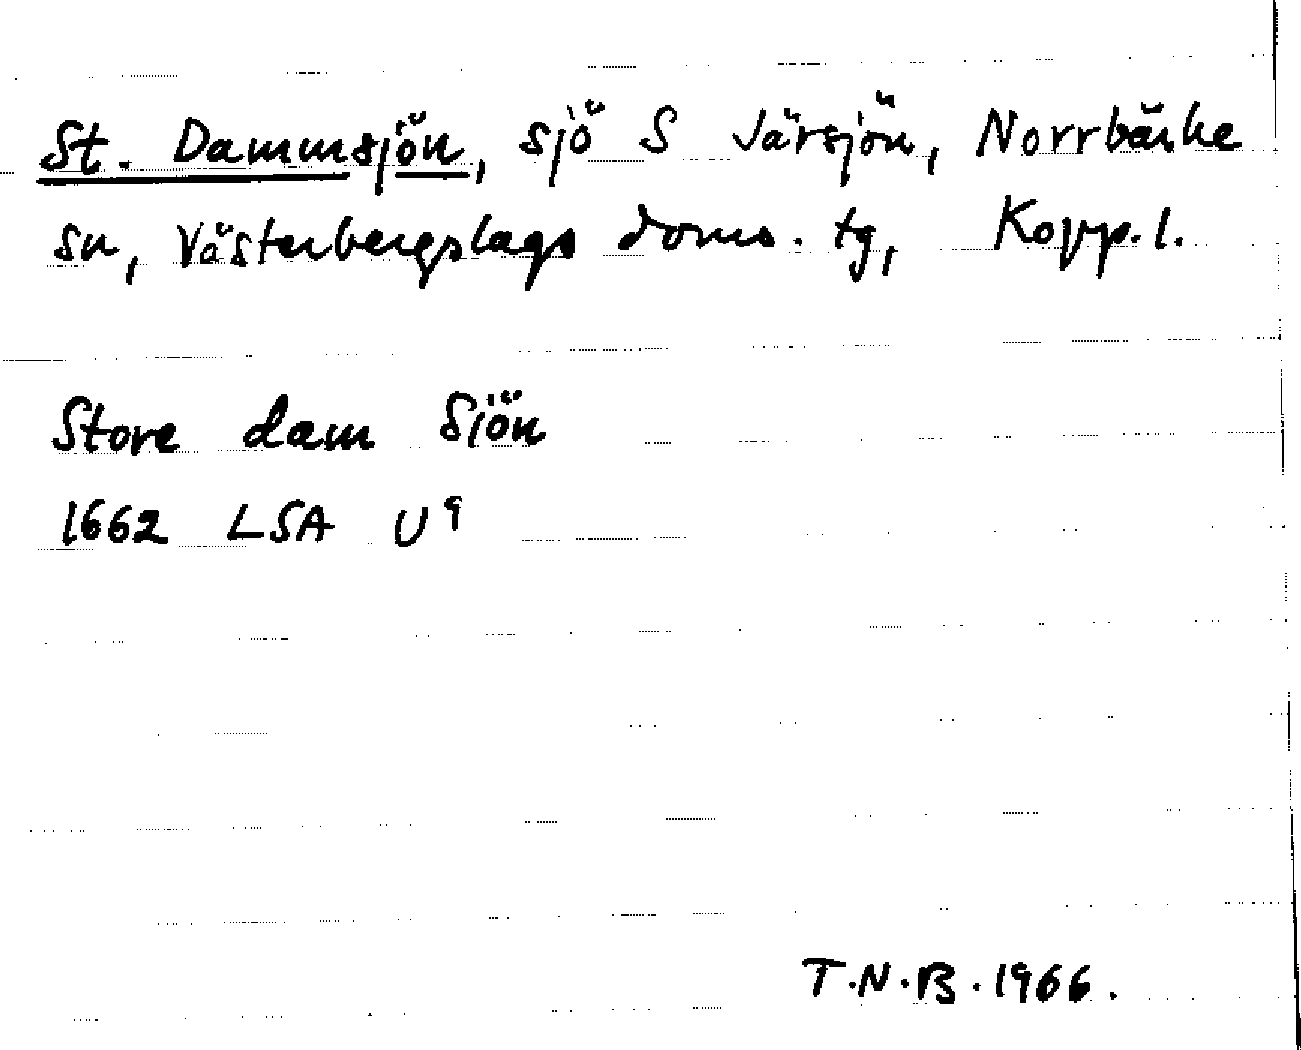 St. Dammsjön, sjö S Järsjön, Norrbärke
sn, Västerbergslags doms. tg, Kopp. l.
Store dam Siön
1662 LSA U⁹
T.N.B. 1966.